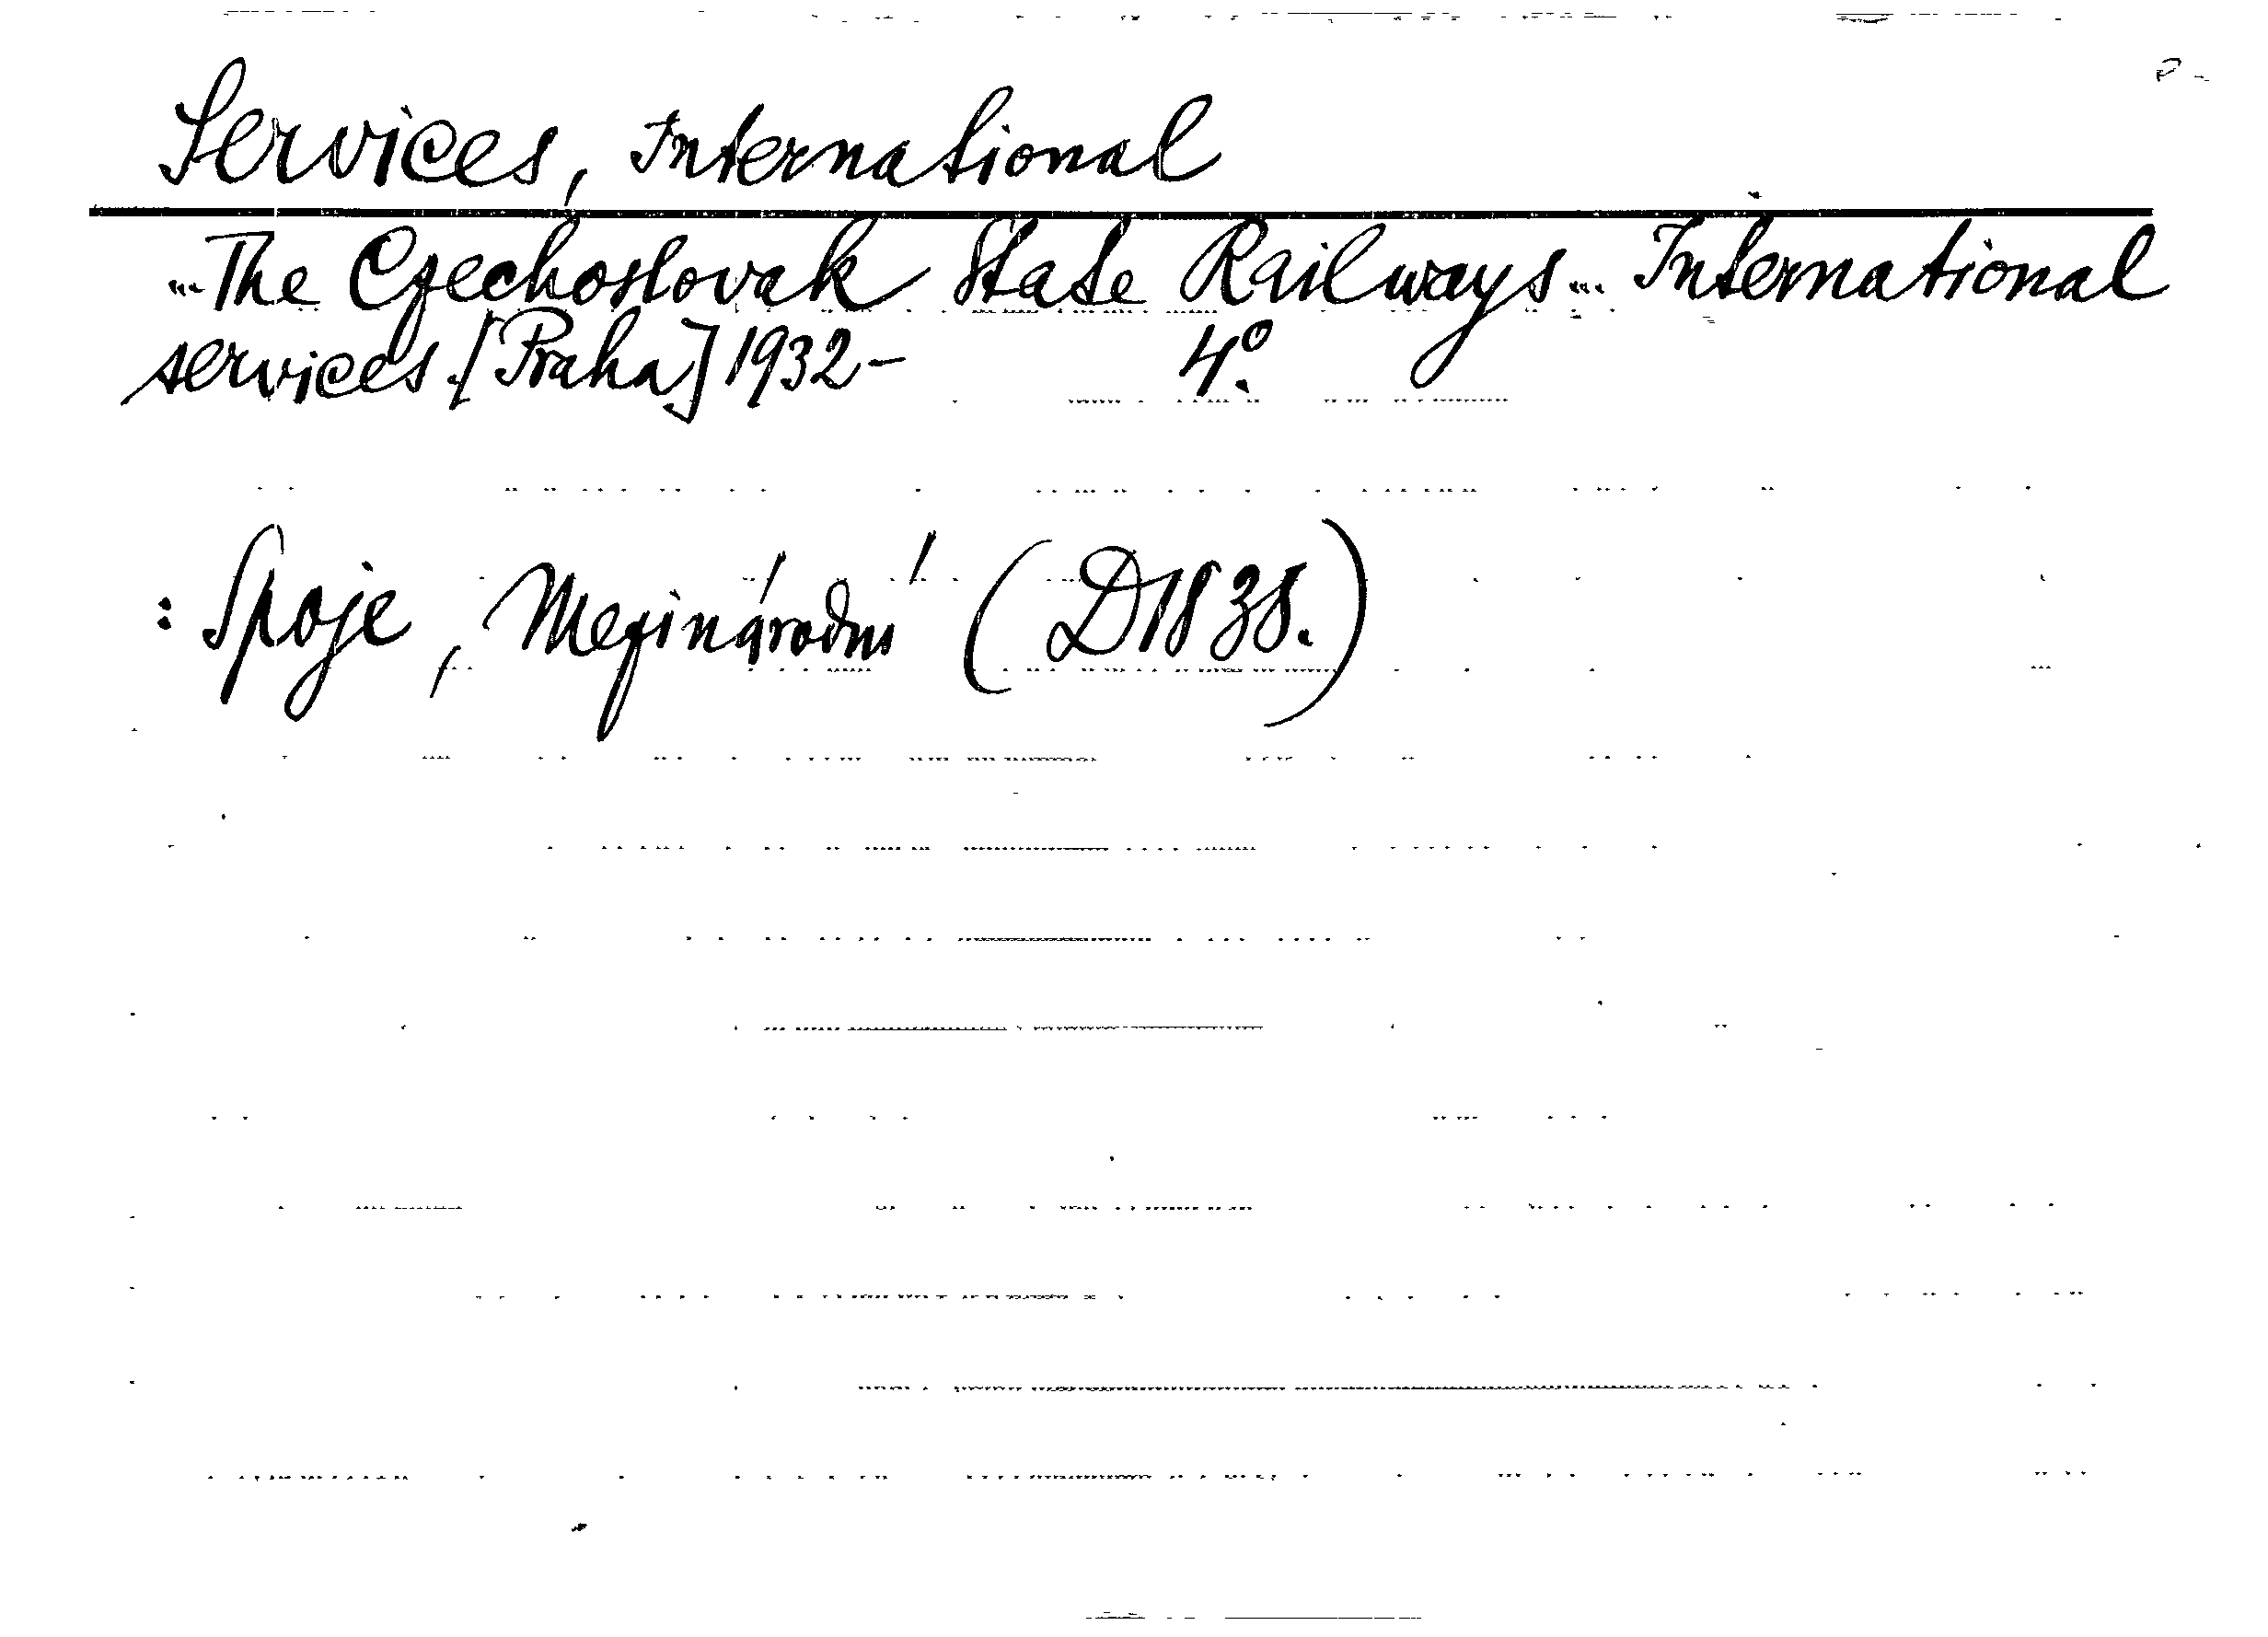 Services, International
...The Czechoslovak State Railways... International
services. [Praha] 1932- 4°.
: Spoje, Mezinárodní (D 1838.)